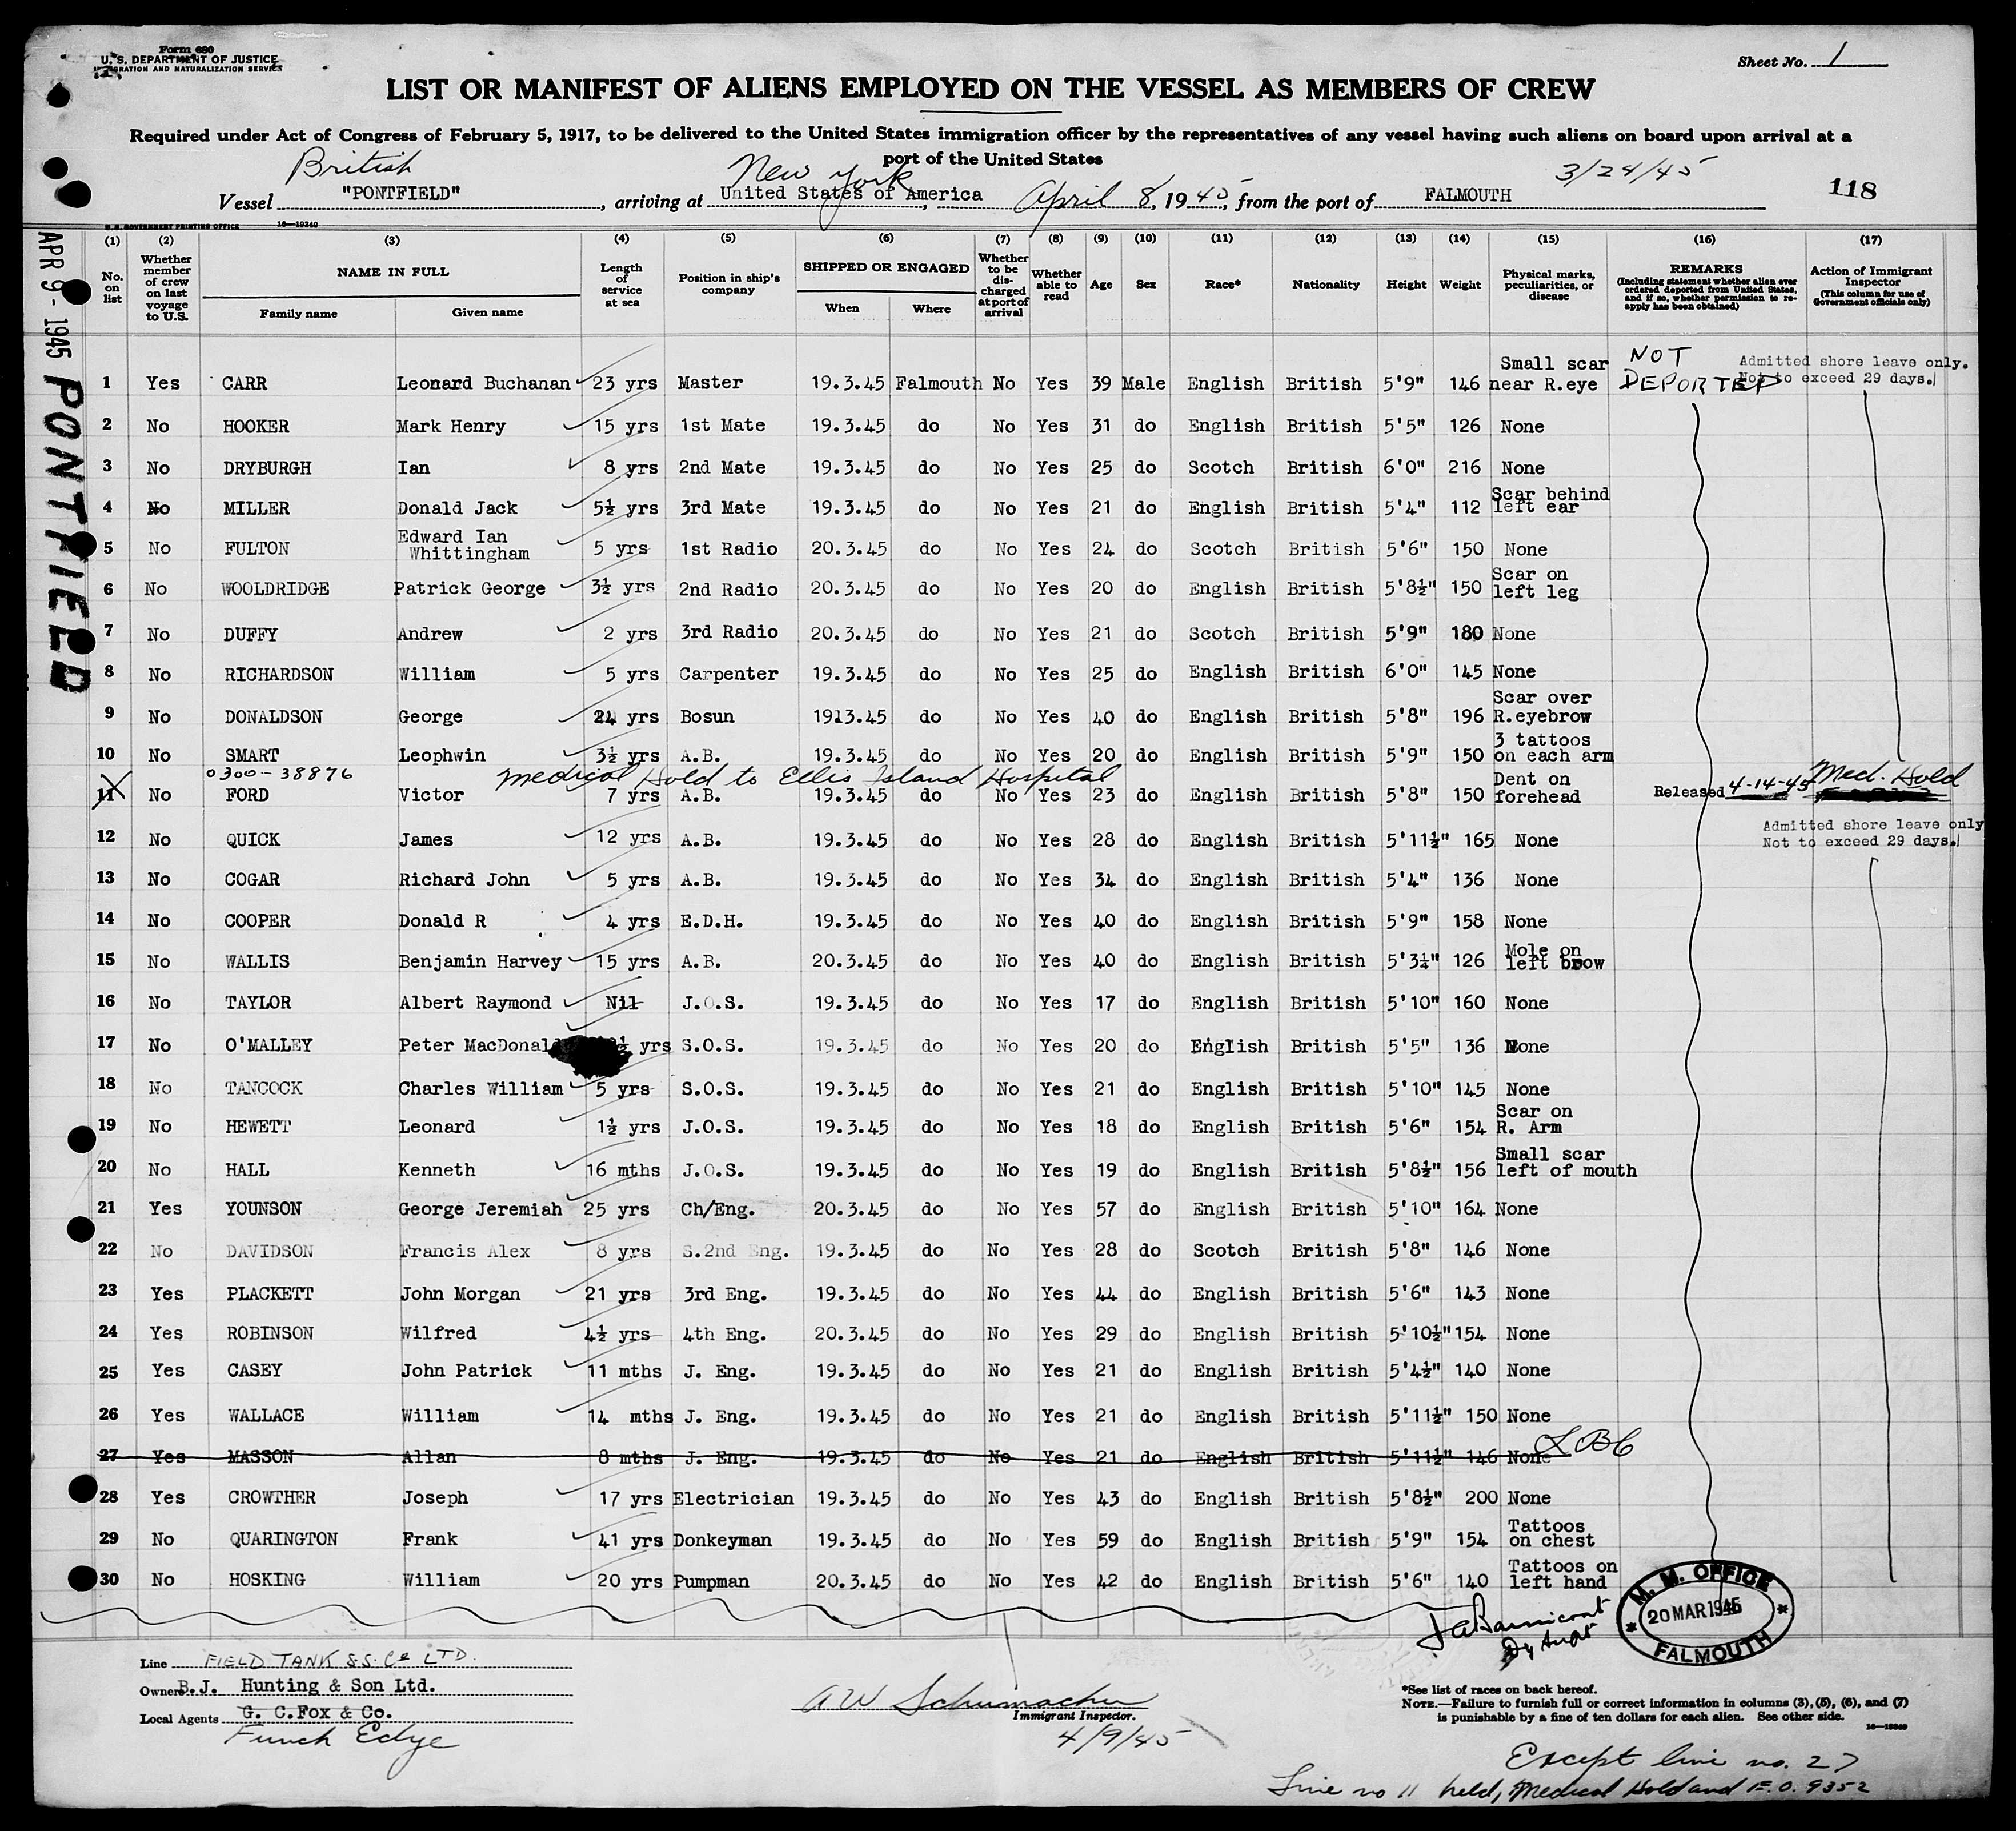 Form 680
U. S. DEPARTMENT OF JUSTICE
IMMIGRATION AND NATURALIZATION SERVICE
Sheet No. 1
LIST OR MANIFEST OF ALIENS EMPLOYED ON THE VESSEL AS MEMBERS OF CREW
Required under Act of Congress of February 5, 1917, to be delivered to the United States immigration officer by the representatives of any vessel having such aliens on board upon arrival at a
port of the United States
British New York 3/24/45
Vessel "PONTFIELD", arriving at United States of America, April 8, 1945, from the port of FALMOUTH 118
U.S. GOVERNMENT PRINTING OFFICE 16—19349
APR 9 - 1945 PONTFIELD
(1) (2) (3) (4) (5) (6) (7) (8) (9) (10) (11) (12) (13) (14) (15) (16) (17)
No. on list
Whether member of crew on last voyage to U.S.
NAME IN FULL
Family name Given name
Length of service at sea
Position in ship's company
SHIPPED OR ENGAGED
When Where
Whether to be discharged at port of arrival
Whether able to read
Age
Sex
Race*
Nationality
Height
Weight
Physical marks, peculiarities, or disease
REMARKS
(Including statement whether alien ever ordered deported from United States, and if so, whether permission to reapply has been obtained)
Action of Immigrant Inspector
(This column for use of Government officials only)
1 Yes CARR Leonard Buchanan 23 yrs Master 19.3.45 Falmouth No Yes 39 Male English British 5'9" 146 Small scar near R.eye NOT DEPORTED Admitted shore leave only. Not to exceed 29 days.
2 No HOOKER Mark Henry 15 yrs 1st Mate 19.3.45 do No Yes 31 do English British 5'5" 126 None
3 No DRYBURGH Ian 8 yrs 2nd Mate 19.3.45 do No Yes 25 do Scotch British 6'0" 216 None
4 No MILLER Donald Jack 5½ yrs 3rd Mate 19.3.45 do No Yes 21 do English British 5'4" 112 Scar behind left ear
5 No FULTON Edward Ian Whittingham 5 yrs 1st Radio 20.3.45 do No Yes 24 do Scotch British 5'6" 150 None
6 No WOOLDRIDGE Patrick George 3½ yrs 2nd Radio 20.3.45 do No Yes 20 do English British 5'8½" 150 Scar on left leg
7 No DUFFY Andrew 2 yrs 3rd Radio 20.3.45 do No Yes 21 do Scotch British 5'9" 180 None
8 No RICHARDSON William 5 yrs Carpenter 19.3.45 do No Yes 25 do English British 6'0" 145 None
9 No DONALDSON George 24 yrs Bosun 1913.45 do No Yes 40 do English British 5'8" 196 Scar over R.eyebrow
10 No SMART Leophwin 3½ yrs A.B. 19.3.45 do No Yes 20 do English British 5'9" 150 3 tattoos on each arm
0300-38876 Medical Hold to Ellis Island Hospital
11 No FORD Victor 7 yrs A.B. 19.3.45 do No Yes 23 do English British 5'8" 150 Dent on forehead Released 4-14-45 Med. Hold
12 No QUICK James 12 yrs A.B. 19.3.45 do No Yes 28 do English British 5'11½" 165 None Admitted shore leave only Not to exceed 29 days.
13 No COGAR Richard John 5 yrs A.B. 19.3.45 do No Yes 34 do English British 5'4" 136 None
14 No COOPER Donald R 4 yrs E.D.H. 19.3.45 do No Yes 40 do English British 5'9" 158 None
15 No WALLIS Benjamin Harvey 15 yrs A.B. 20.3.45 do No Yes 40 do English British 5'3¼" 126 Mole on left brow
16 No TAYLOR Albert Raymond Nil J.O.S. 19.3.45 do No Yes 17 do English British 5'10" 160 None
17 No O'MALLEY Peter MacDonald yrs S.O.S. 19.3.45 do No Yes 20 do English British 5'5" 136 None
18 No TANCOCK Charles William 5 yrs S.O.S. 19.3.45 do No Yes 21 do English British 5'10" 145 None
19 No HEWETT Leonard 1½ yrs J.O.S. 19.3.45 do No Yes 18 do English British 5'6" 154 Scar on R. Arm
20 No HALL Kenneth 16 mths J.O.S. 19.3.45 do No Yes 19 do English British 5'8½" 156 Small scar left of mouth
21 Yes YOUNSON George Jeremiah 25 yrs Ch/Eng. 20.3.45 do No Yes 57 do English British 5'10" 164 None
22 No DAVIDSON Francis Alex 8 yrs S.2nd Eng. 19.3.45 do No Yes 28 do Scotch British 5'8" 146 None
23 Yes PLACKETT John Morgan 21 yrs 3rd Eng. 19.3.45 do No Yes 44 do English British 5'6" 143 None
24 Yes ROBINSON Wilfred 4½ yrs 4th Eng. 20.3.45 do No Yes 29 do English British 5'10½" 154 None
25 Yes CASEY John Patrick 11 mths J. Eng. 19.3.45 do No Yes 21 do English British 5'4½" 140 None
26 Yes WALLACE William 14 mths J. Eng. 19.3.45 do No Yes 21 do English British 5'11½" 150 None
27 Yes MASSON Allan 8 mths J. Eng. 19.3.45 do No Yes 21 do English British 5'11½" 146 None
28 Yes CROWTHER Joseph 17 yrs Electrician 19.3.45 do No Yes 43 do English British 5'8½" 200 None
29 No QUARINGTON Frank 41 yrs Donkeyman 19.3.45 do No Yes 59 do English British 5'9" 154 Tattoos on chest
30 No HOSKING William 20 yrs Pumpman 20.3.45 do No Yes 42 do English British 5'6" 140 Tattoos on left hand
M. M. OFFICE
20 MAR 1945
FALMOUTH
Line FIELD TANK S.S. Co LTD.
Owners B.J. Hunting & Son Ltd.
Local Agents G. C.Fox & Co.
Funch Edye
A W Schumacher
Immigrant Inspector.
4/9/45
*See list of races on back hereof.
NOTE.—Failure to furnish full or correct information in columns (3), (5), (6), and (7)
is punishable by a fine of ten dollars for each alien. See other side.
16—19349
Except line no. 27
Line no 11 held, Medical Hold and E.O. 9352